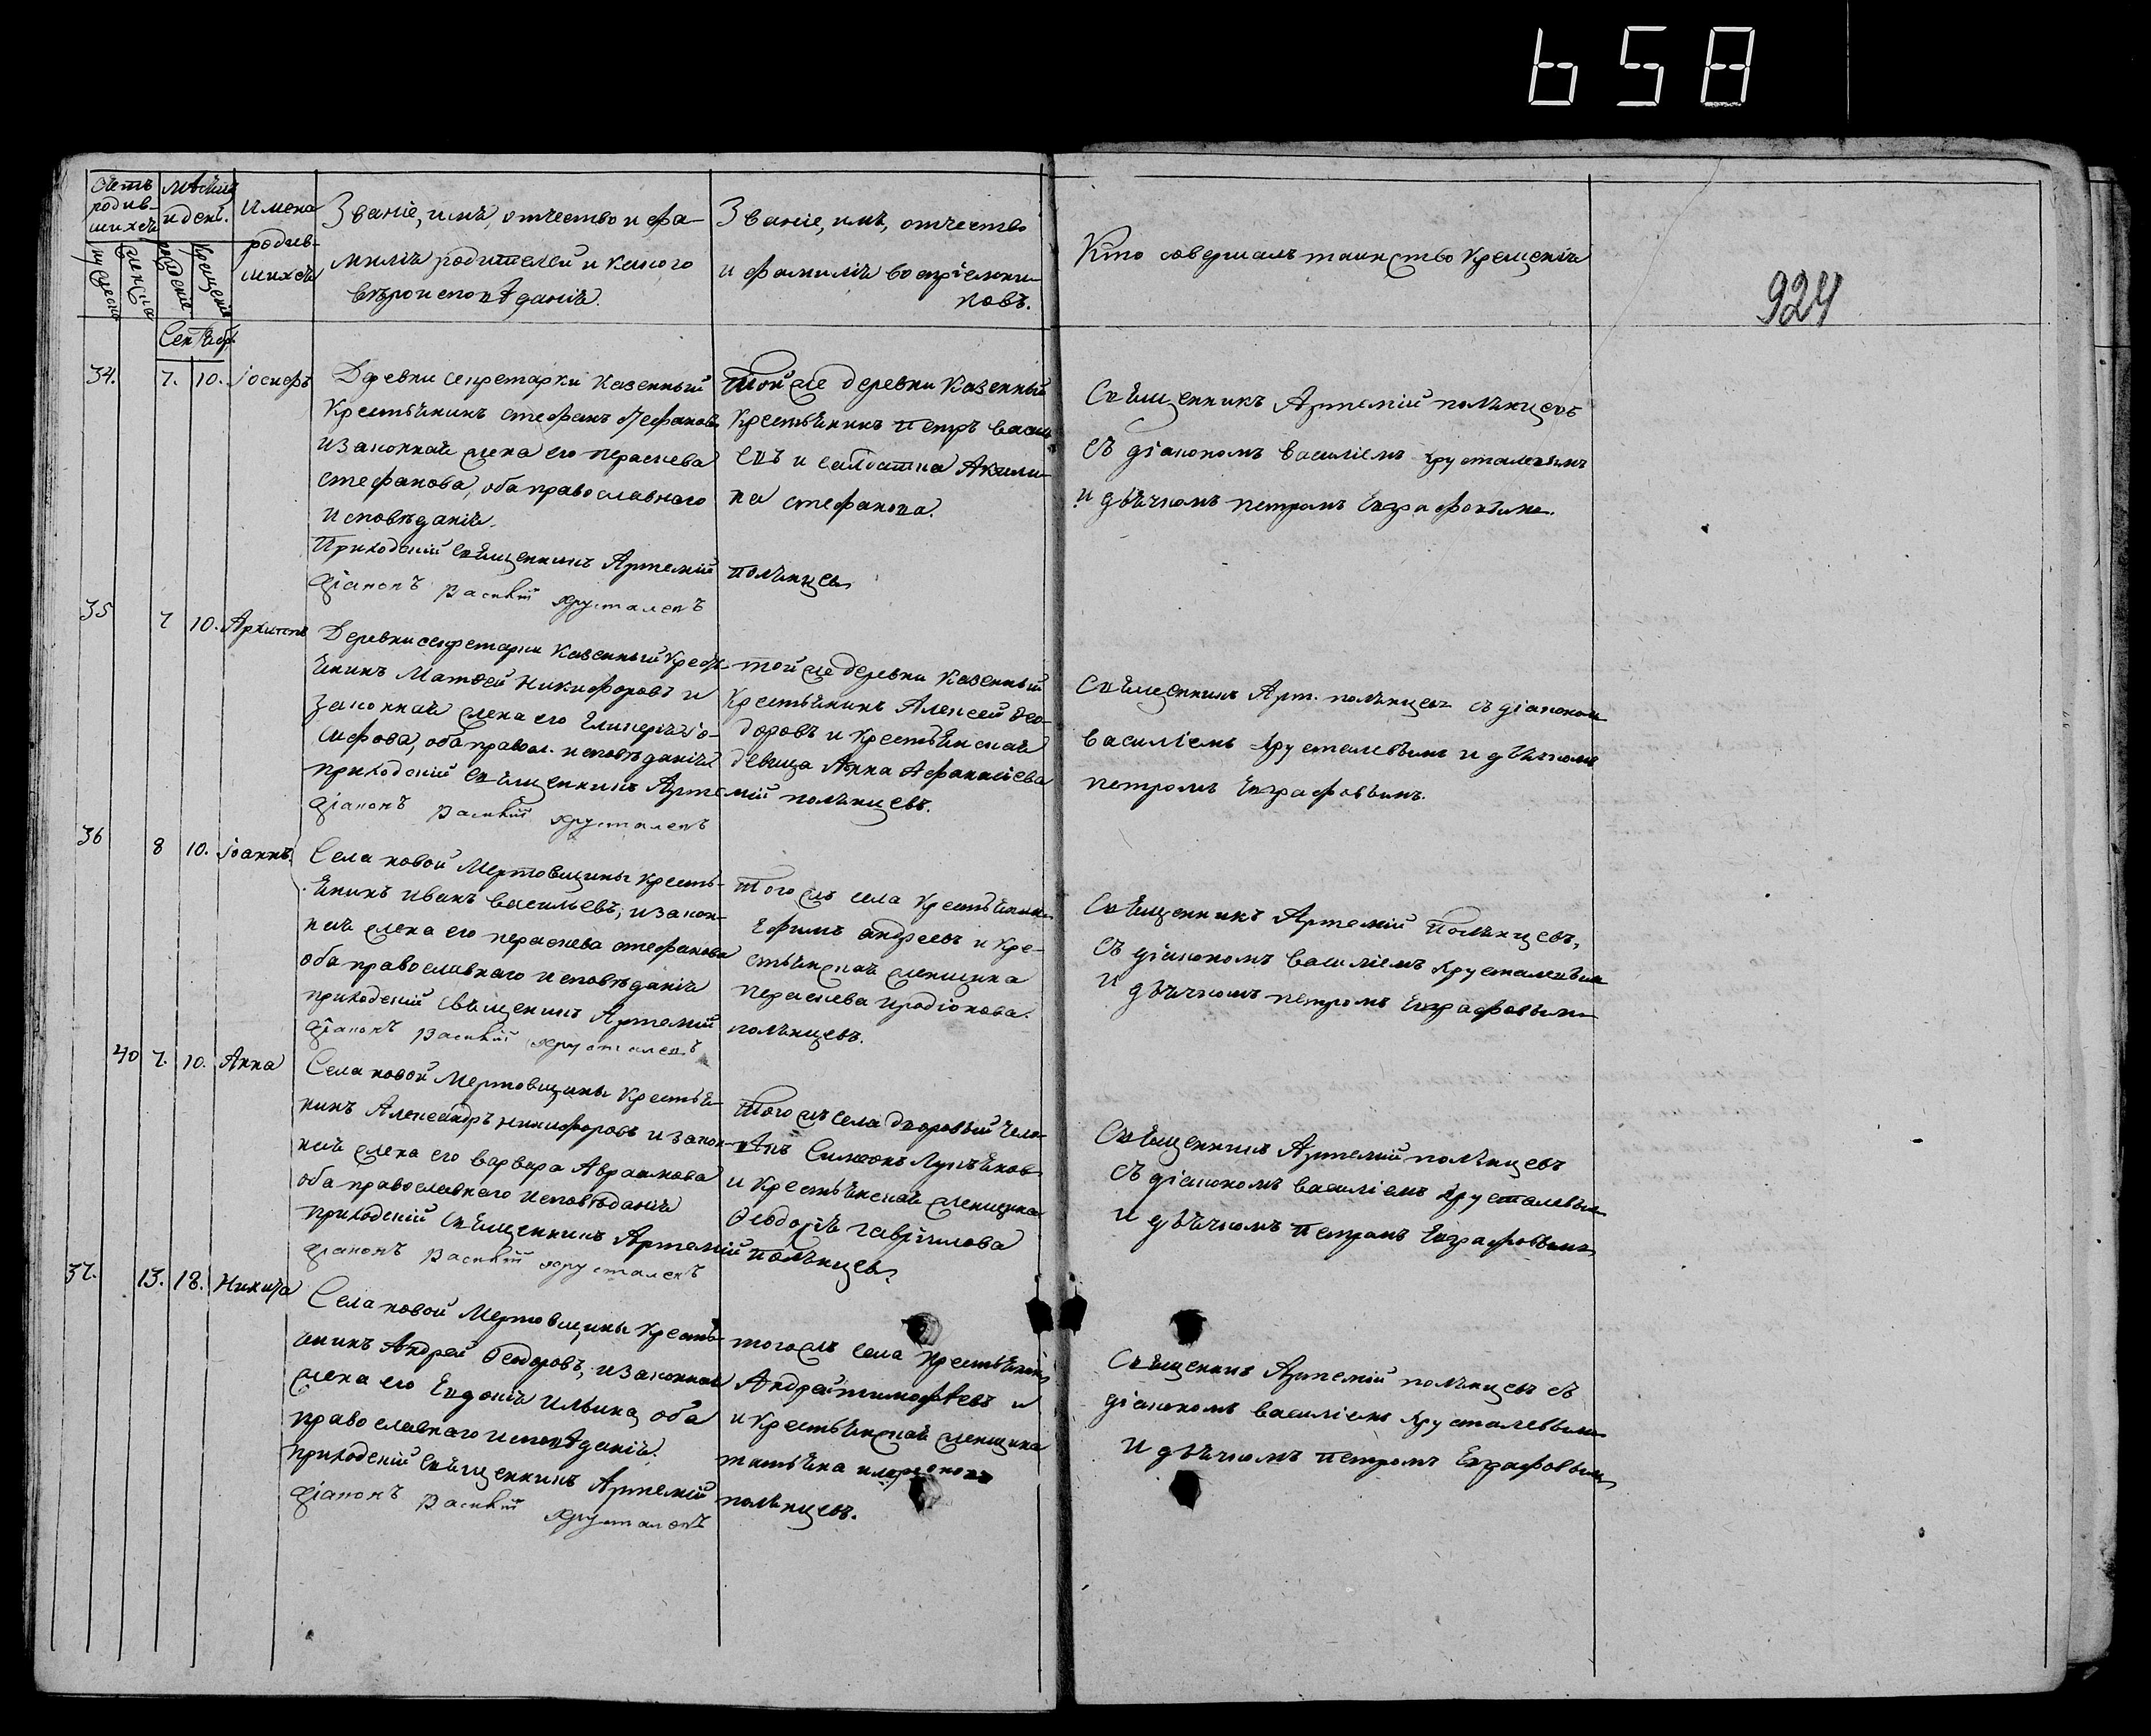 658
924
Счетъ родив-шихся
мужеска
женска
Мѣсяцъ и день.
рожденія
Крещенія
Имена родив-шихся
Званіе, имя, отчество и фа-
милія родителей и какого
вѣроисповѣданія.
Званіе, имя, отчество
и фамилія воспріемни-
ковъ.
Кто совершалъ таинство крещенія
Сентябр.
34. 7. 10. Іосифъ
Деревни секретарки казенный
крестьянинъ Стефанъ Стефановъ
и законная жена его Параскева
Стефанова, оба православнаго
исповѣданія.
Приходскій священникъ Артемій Полянцевъ
Діаконъ Василій Хрусталевъ
Той же деревни казенный
крестьянинъ Петръ Василь
евъ и салдатка Акили-
на Стефанова.
Священникъ Артемій Полянцевъ
съ діакономъ Василіемъ Хрусталевымъ
и дьячкомъ Петромъ Евграфовымъ.
35 7 10. Архиппъ
Деревни секретарки казенный кресть-
янинъ Матѳей Никифоровъ и
законная жена его Гликерія Іо-
сифова, оба правосл. исповѣданія
приходскій священникъ Артемій Полянцевъ.
Діаконъ Василій Хрусталевъ
той же деревни казенный
крестьянинъ Алексей Ѳео-
доровъ и крестьянская
девица Анна Афанасіева
Священникъ Арт. Полянцевъ съ діакономъ
Василіемъ Хрусталевымъ и дьячкомъ
Петромъ Евграфовымъ.
36 8 10. Іоаннъ
Села новой Мертовщины кресть-
янинъ Иванъ Васильевъ, и закон-
ная жена его Параскева Стефанова
оба православнаго исповѣданія
приходскій священникъ Артемій Полянцевъ.
Діаконъ Василій Хрусталевъ
Того жъ села крестьянинъ
Ефимъ Андреевъ и кре-
стьянская женщина
Параскева Иродіонова.
Священникъ Артемій Полянцевъ,
съ діакономъ Василіемъ Хрусталевымъ
и дьячкомъ Петромъ Евграфовымъ
40 7. 10. Анна
Села новой Мертовщины крестья-
нинъ Александръ Никифоровъ и закон-
ная жена его Варвара Авраамова
оба православнаго исповѣданія
приходскій священникъ Артемій Полянцевъ
Діаконъ Василій Хрусталевъ
Того жъ села дворовый чело-
вѣкъ Симеонъ Лукъяновъ
и крестьянская женщина
Ѳеодосія Гавріилова
Священникъ Артемій Полянцевъ
съ діакономъ Василіемъ Хрусталевымъ
и дьячкомъ Петромъ Евграфовымъ
37. 13. 18. Никита
Села новой Мертовщины кресть-
янинъ Андрей Ѳеодоровъ, и законная
жена его Евдокія Ильина, оба
православнаго исповѣданія
приходскій священникъ Артемій Полянцевъ.
Діаконъ Василій Хрусталевъ
того жъ села крестьянинъ
Андрей Тимофѣевъ и
и крестьянская женщина
татьяна
Священникъ Артемій Полянцевъ съ
діакономъ Василіемъ Хрусталевымъ
и дьячкомъ Петромъ Евграфовымъ